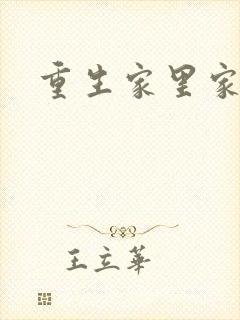 重生家里家
王立华